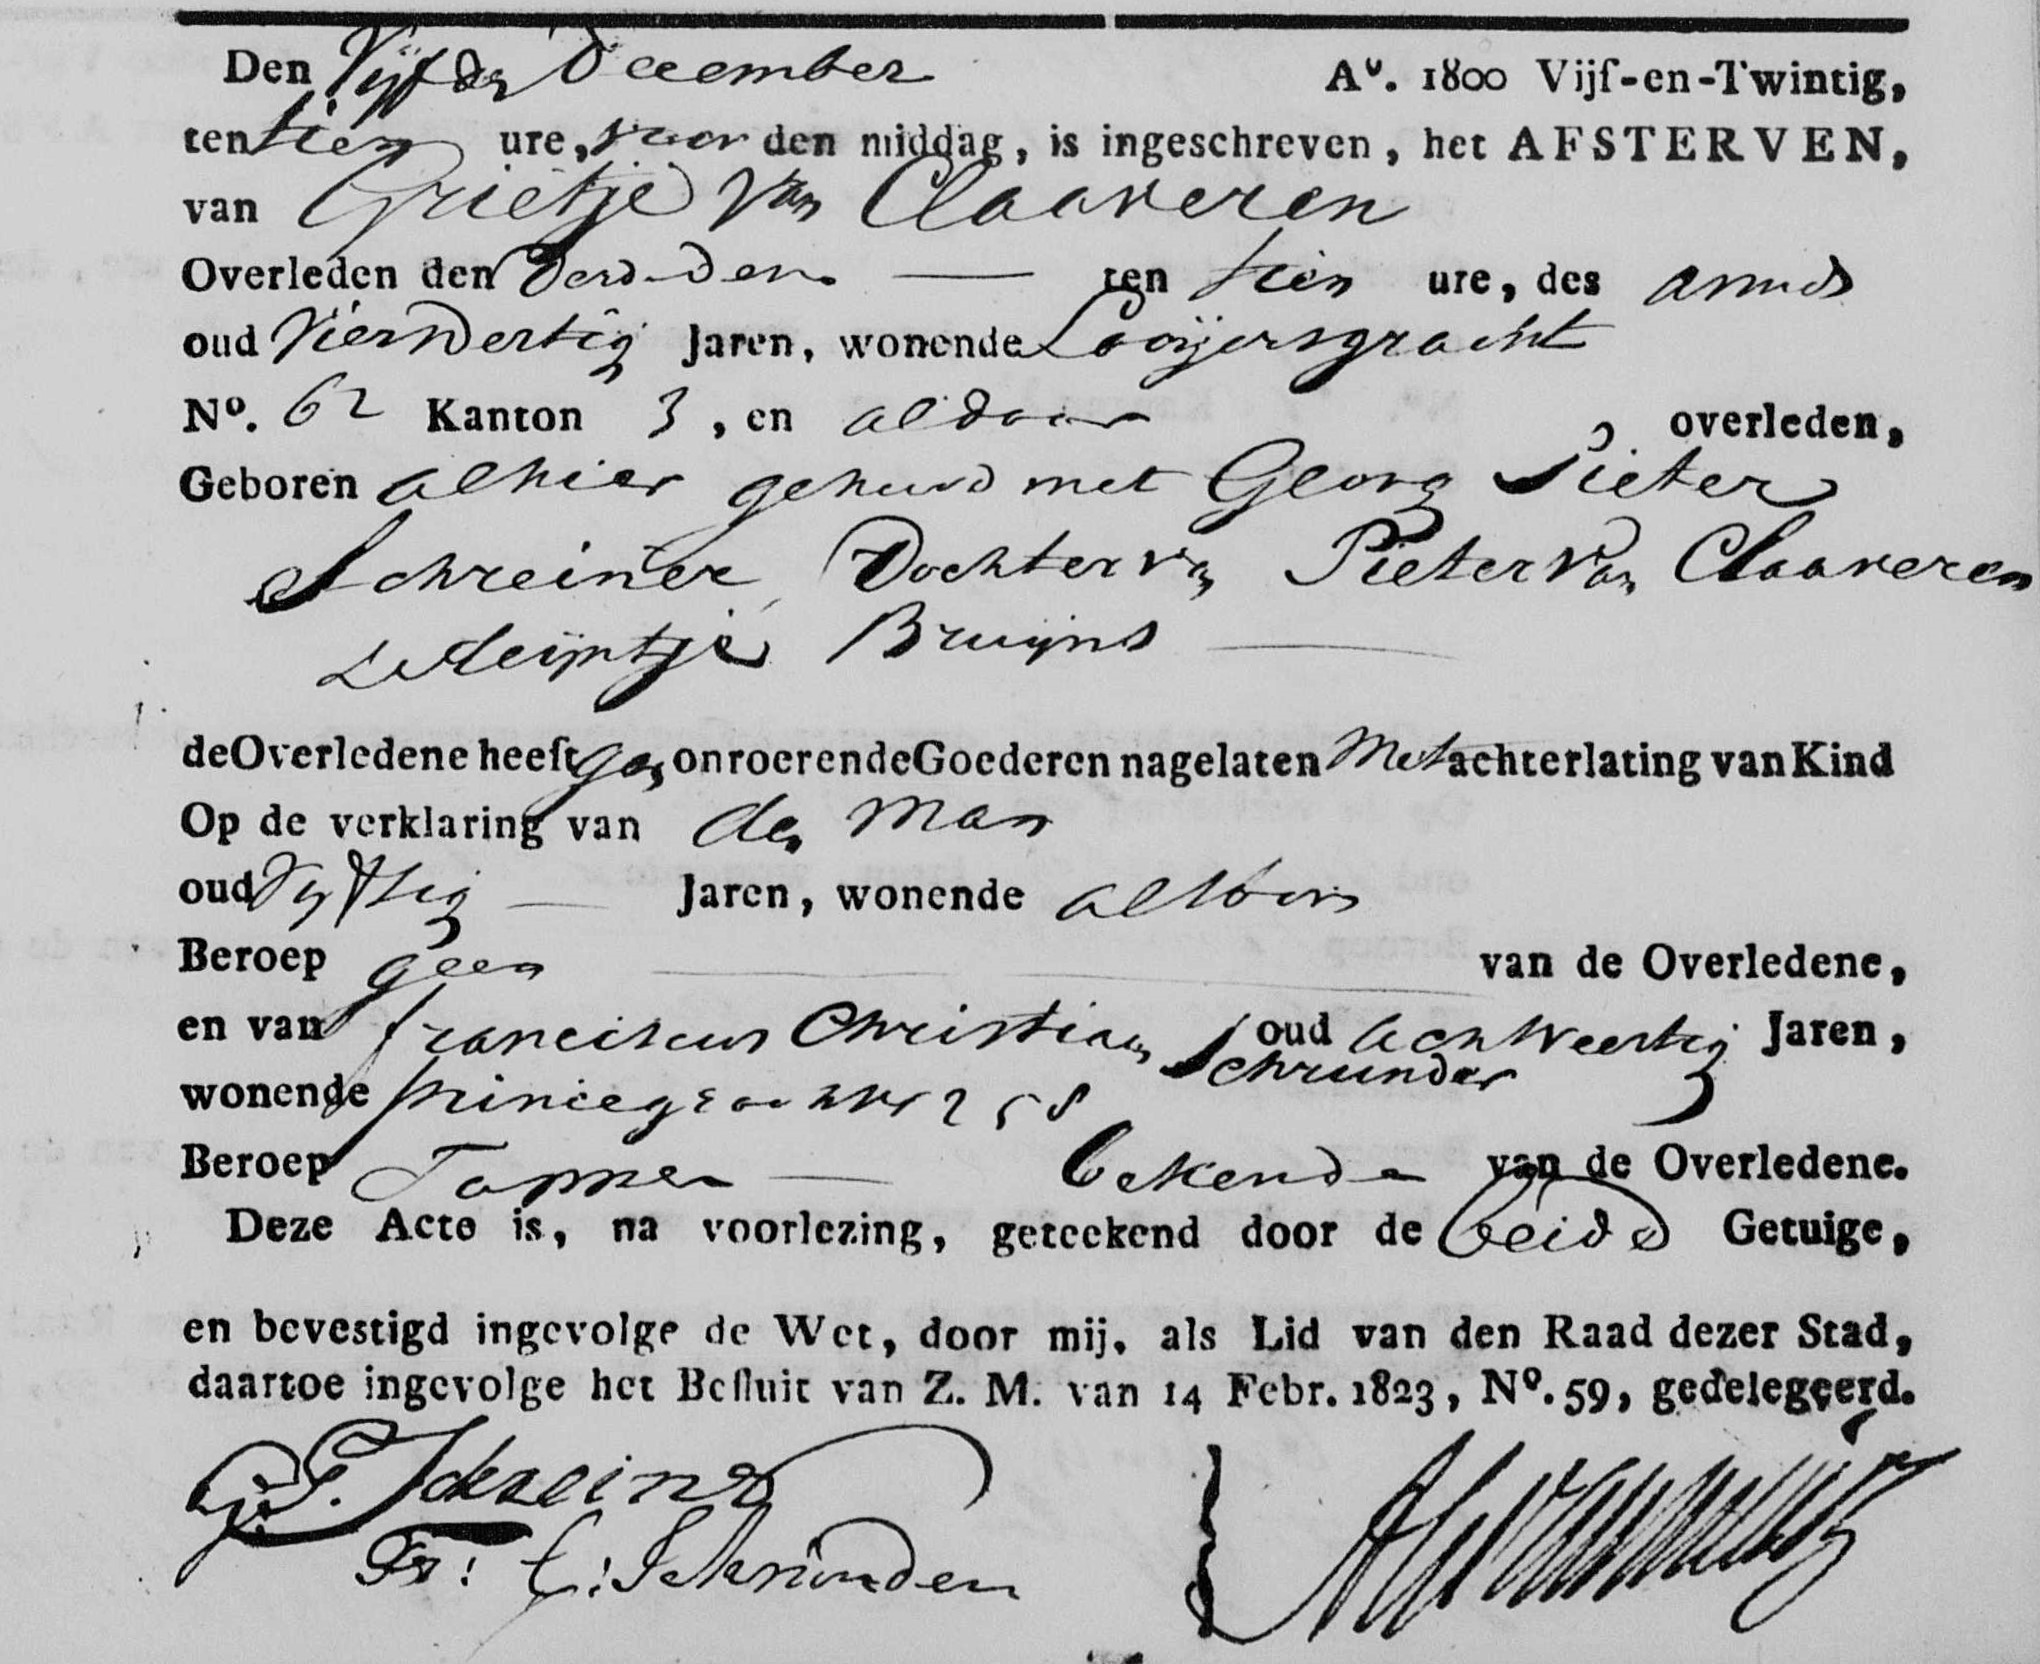 Den Vijfde December Aº. 1800 Vijf-en-Twintig,
ten tien ure, voor den middag, is ingeschreven, het AFSTERVEN,
van Grietje van Claaveren
Overleden den Derden ten tien ure, des avonds
oud Vierendertig Jaren, wonende Looijersgracht
Nº. 62 Kanton 3, en aldaar overleden,
Geboren alhier gehuwd met Georg Pieter
Schreiner Dochter van Pieter van Claaveren
& Heijntje Bruijns
de Overledene heeft geen onroerende Goederen nagelaten Met achterlating van Kind
Op de verklaring van de Man
oud Vyftig Jaren, wonende alvoren
Beroep geen van de Overledene,
en van Franciscus Christiaan Schrunder oud achtveertig Jaren,
wonende Princegracht 258
Beroep Tapper bekende van de Overledene.
Deze Acte is, na voorlezing, geteekend door de beide Getuige,
en bevestigd ingevolge de Wet, door mij, als Lid van den Raad dezer Stad,
daartoe ingevolge het Besluit van Z. M. van 14 Febr. 1823, Nº. 59, gedelegeerd.
G. P. Schreiner
Fr: C: Schründer